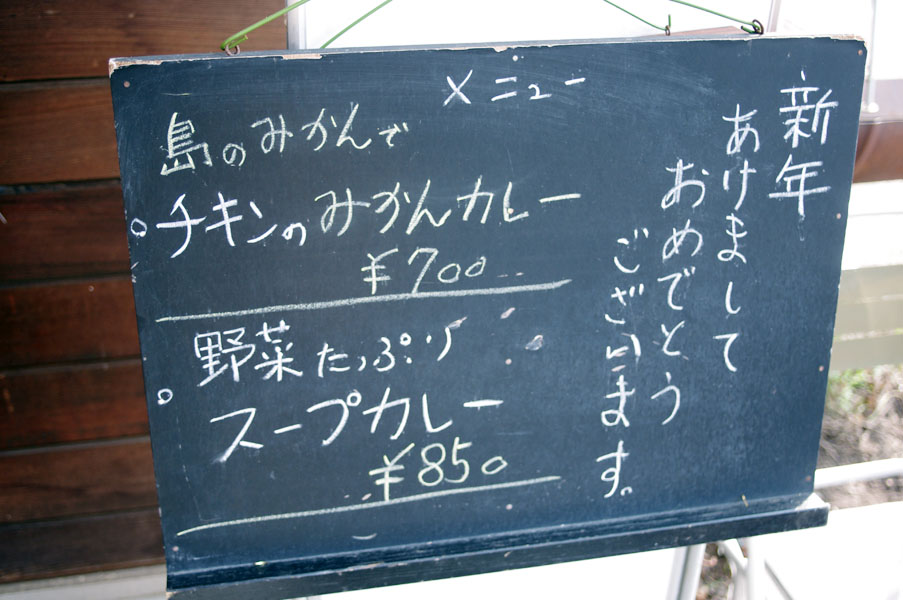 メニュー
新年
あけまして
おめでとう
ございます。
島のみかんで
○チキンのみかんカレー
¥700
野菜たっぷり
○スープカレー
¥850